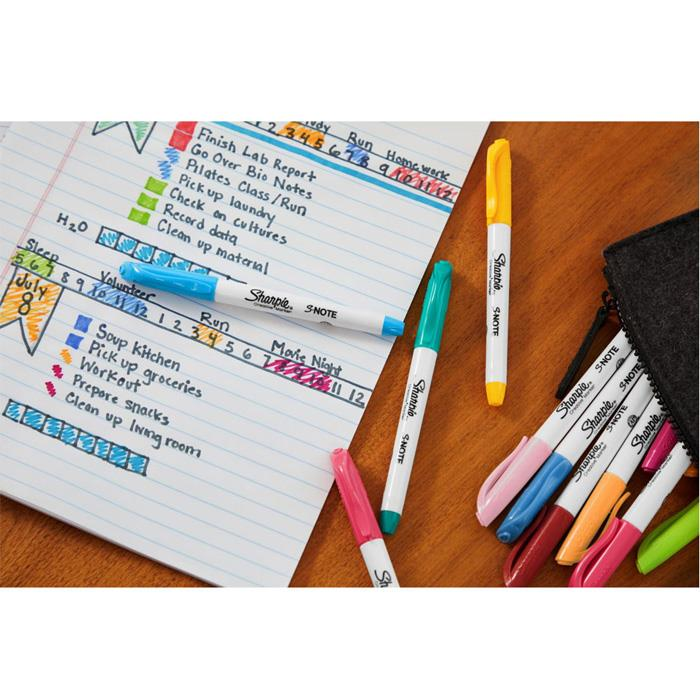 2 3 4 5 Run 7 8 Homework 9 10 11 12
Finish Lab Report
Go Over Bio Notes
Pilates Class/Run
Pick up laundry
Check on cultures
Record data
Clean up material
H₂O
Sleep Volunteer Run Movie Night
5 6 7 8 9 10 11 12 1 2 3 4 5 6 7 8 9 10 11 12
July
8
Soup Kitchen
Pick up groceries
Workout
Prepare snacks
Clean up living room
Sharpie S-NOTE
Creative Marker
Sharpie S-NOTE
Sharpie S-NOTE
Sharpie S-NOTE
Creative Marker
Sharpie S-NOTE
Sharpie
Creative Marker